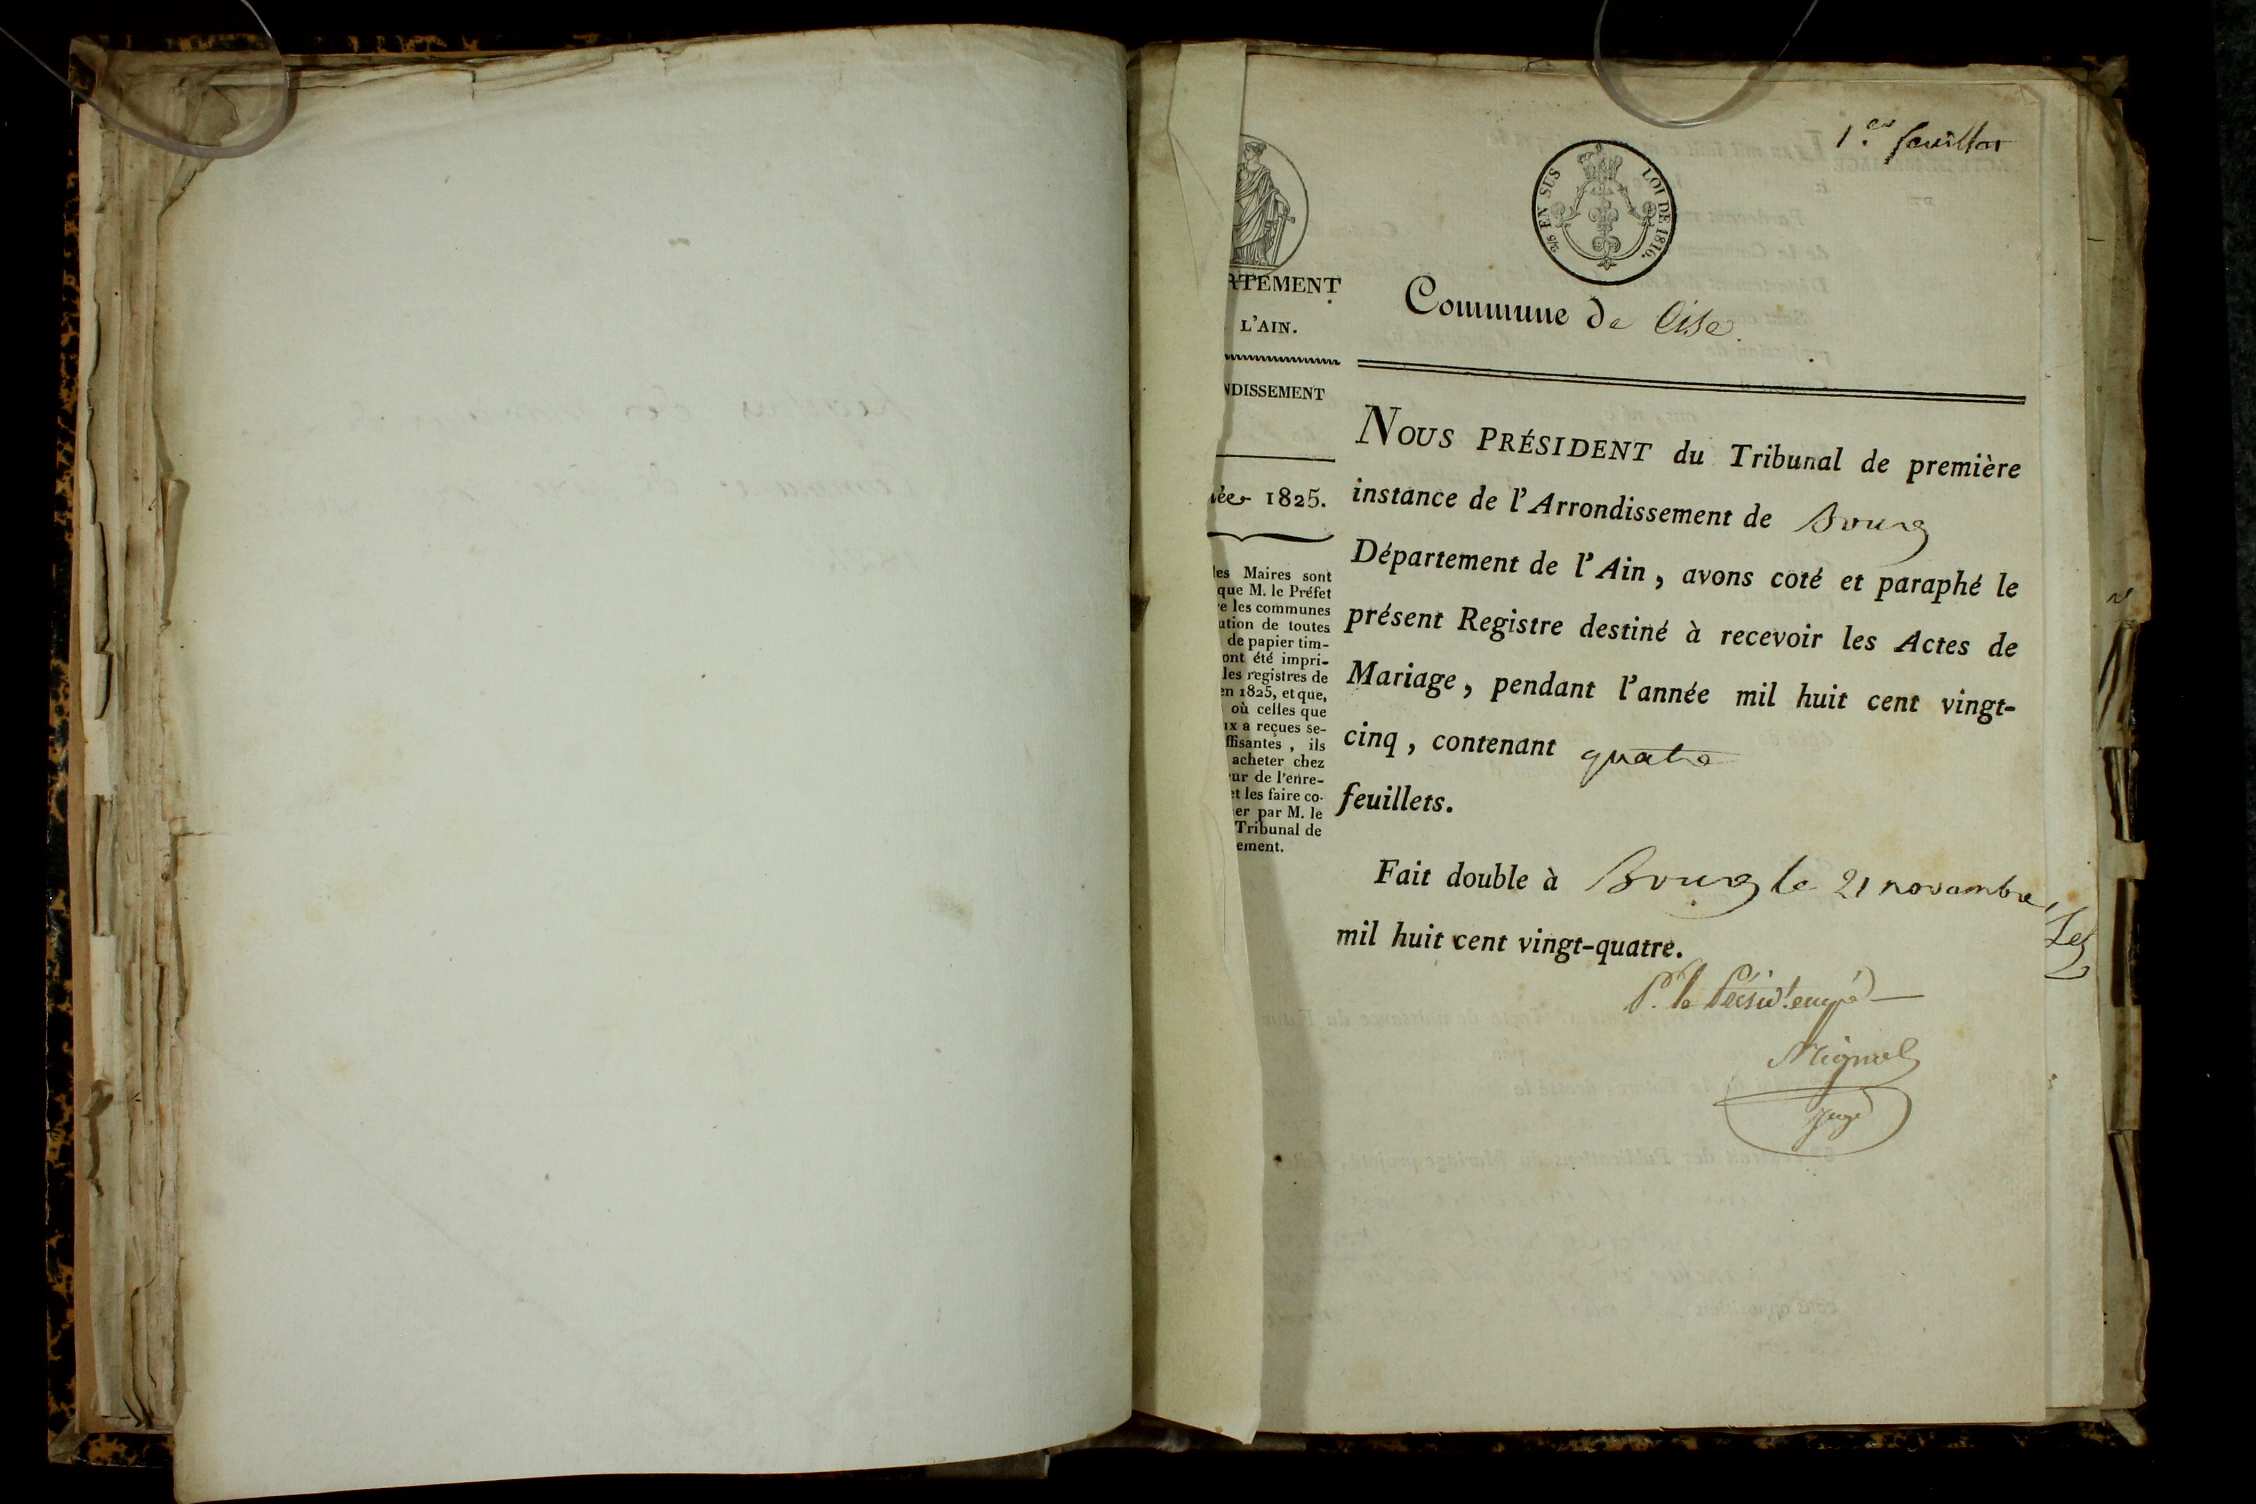 1.er feuillet
2/5 EN SUS
LOI DE 1816.
RTEMENT
L'AIN.
NDISSEMENT
née 1825.
les Maires sont
que M. le Préfet
re les communes
ution de toutes
de papier tim-
ont été impri-
les registres de
en 1825, et que,
où celles que
ux a reçues se-
ffisantes, ils
acheter chez
ur de l'enre-
et les faire co-
er par M. le
Tribunal de
ement.
Commune de Cise.
NOUS PRÉSIDENT du Tribunal de première
instance de l'Arrondissement de Bourg
Département de l'Ain, avons coté et paraphé le
présent Registre destiné à recevoir les Actes de
Mariage, pendant l'année mil huit cent vingt-
cinq, contenant quatre
feuillets.
Fait double à Bourg le 21 novembre
mil huit cent vingt-quatre.
P. le Présid.t empê
juge